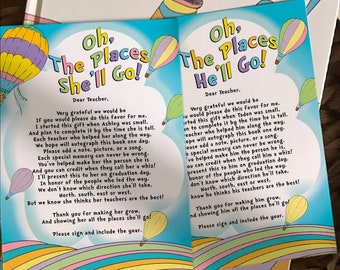 Oh,
The Places
She'll Go!
Dear Teacher,
Very grateful we would be
If you would please do this favor for me.
I started this gift when Ashley was small,
And plan to complete it by the time she is tall.
Each teacher who helped her along the way,
We hope will autograph this book one day.
Please add a note, picture, or a song.
Each special memory can never be wrong.
You've helped make her the person she is
And you can credit them when they call her a whiz!
I'll present this to her on graduation day.
In honor of the people who led the way.
We don't know which direction she'll take,
North, south, east or west.
But we know she thinks her teachers are the best!
Thank you for making her grow,
And showing her all the places she'll go!
Please sign and include the year.
Oh,
The Places
He'll Go!
Dear Teacher,
Very grateful we would be
would please do this favor for me.
ed this gift when Jaden was small,
n to complete it by the time he is tall.
cher who helped him along the way,
pe will autograph this book one day.
se add a note, picture, or a song.
special memory can never be wrong.
e helped make him the person he is
can credit them when they call him a whiz!
esent this to him on graduation day.
honor of the people who led the way.
n't know which direction he'll take,
North, south, east or west.
now he thinks his teachers are the best!
Thank you for making him grow,
showing him all the places he'll go!
Please sign and include the year.